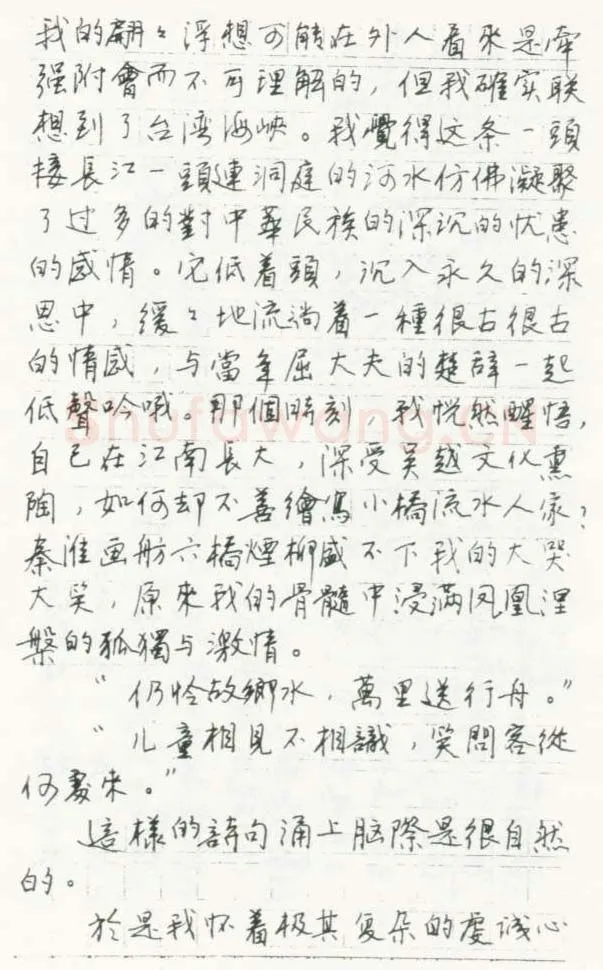 我的翩々浮想可能在外人看來是牽
强附會而不可理解的，但我確实联
想到了台湾海峡。我覺得这条一頭
接長江一頭連洞庭的河水仿佛凝聚
了过多的對中華民族的深沉的忧患
的感情。它低着頭，沉入永久的深
思中，缓々地流淌着一種很古很古
的情感，与當年屈大夫的楚辞一起
低聲吟哦。那個時刻，我恍然醒悟，
自己在江南長大，深受吴越文化熏
陶，如何却不善繪寫小橋流水人家？
秦淮画舫六橋煙柳盛不下我的大哭
大笑，原來我的骨髓中浸滿凤凰涅
槃的孤獨与激情。
“仍怜故鄉水，萬里送行舟。”
“儿童相見不相識，笑問客從
何處來。”
這樣的詩句涌上脑際是很自然
的。
於是我怀着极其复杂的虔诚心
Shufawang.CN